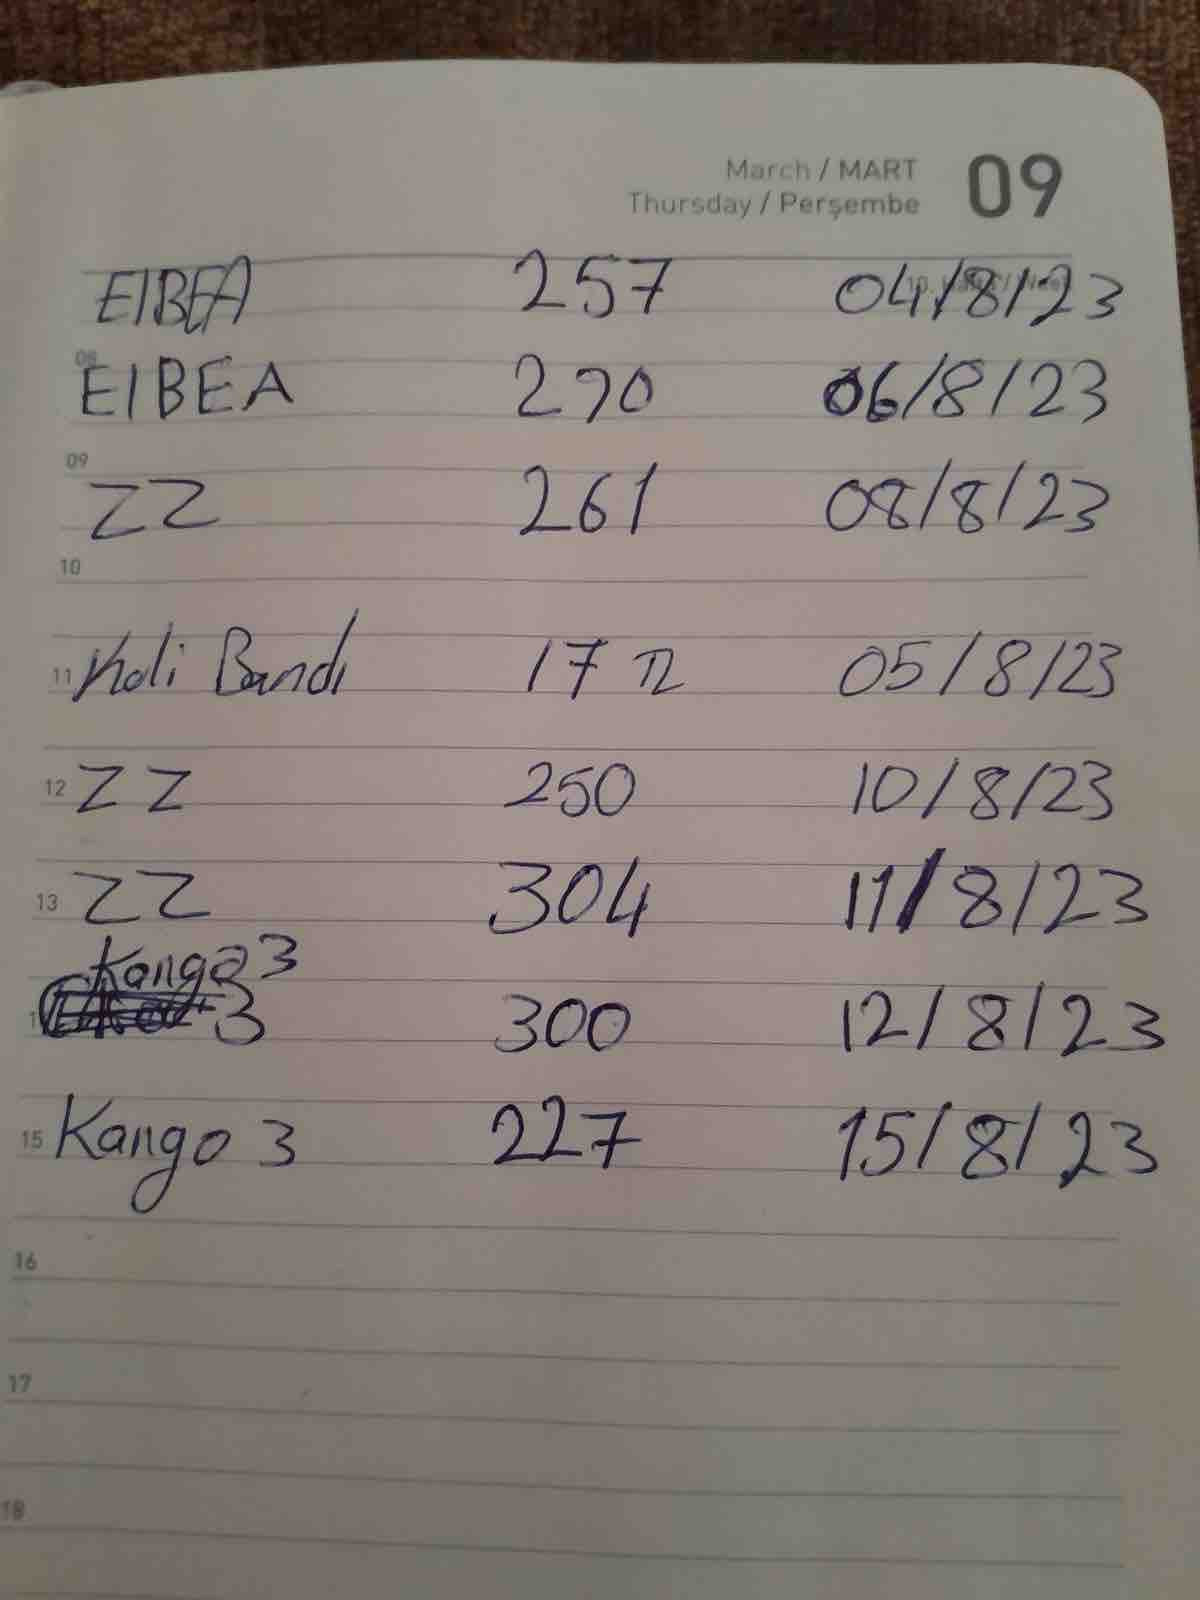 March / MART 09
Thursday / Perşembe
EIBEA 257 04/8/23
08
EIBEA 290 06/8/23
09
ZZ 261 08/8/23
10
11 Koli Bandı 17 TL 05/8/23
12 ZZ 250 10/8/23
13 ZZ 304 11/8/23
Kango 3
3 300 12/8/23
15 Kango 3 227 15/8/23
16
17
18